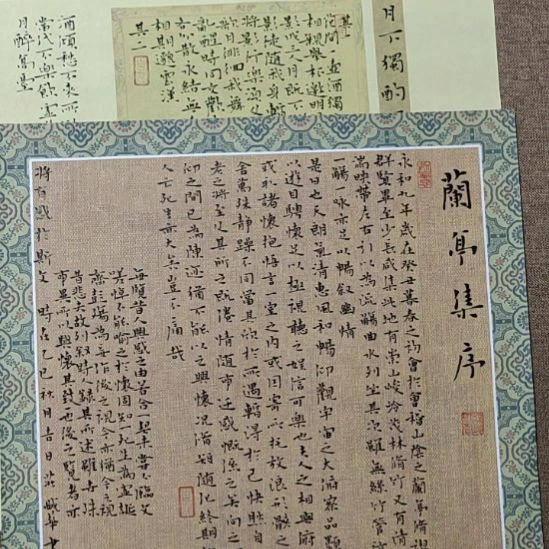 月下獨酌
其一
花間一壺酒獨
相親舉杯邀明
影成三人月既不
影徒隨我身暫
將影行樂須及
歌月徘徊我舞
醒時同交歡
各分散永結無
相期邈雲漢
其二
酒傾愁不來所
當代不樂飲虛
月醉高臺
蘭亭集序
永和九年歲在癸丑暮春之初會於會稽山陰之蘭亭脩禊
群賢畢至少長咸集此地有崇山峻嶺茂林脩竹又有清
湍映帶左右引以為流觴曲水列坐其次雖無絲竹管
一觴一詠亦足以暢叙幽情
是日也天朗氣清惠風和暢仰觀宇宙之大俯察品類
以遊目騁懷足以極視聽之娛信可樂也夫人之相與俯
或取諸懷抱悟言一室之內或因寄所托放浪形骸之
舍萬殊靜躁不同當其欣於所遇暫得於己快然自
老之將至及其所之既倦情隨事遷感慨係之矣向之
仰之間已為陳迹猶不能不以之興懷況脩短隨化終期
人云死生亦大矣豈不痛哉
每覽昔人興感之由若合一契未嘗不臨文
嗟悼不能喻之於懷固知死生為虛誕
齊彭殤為妄作後之視今亦猶今之視
昔悲夫故列叙時人錄其所述雖世殊
事異所以興懷其致一也後之覽者亦
將有感於斯文 時在乙巳秋月吉日